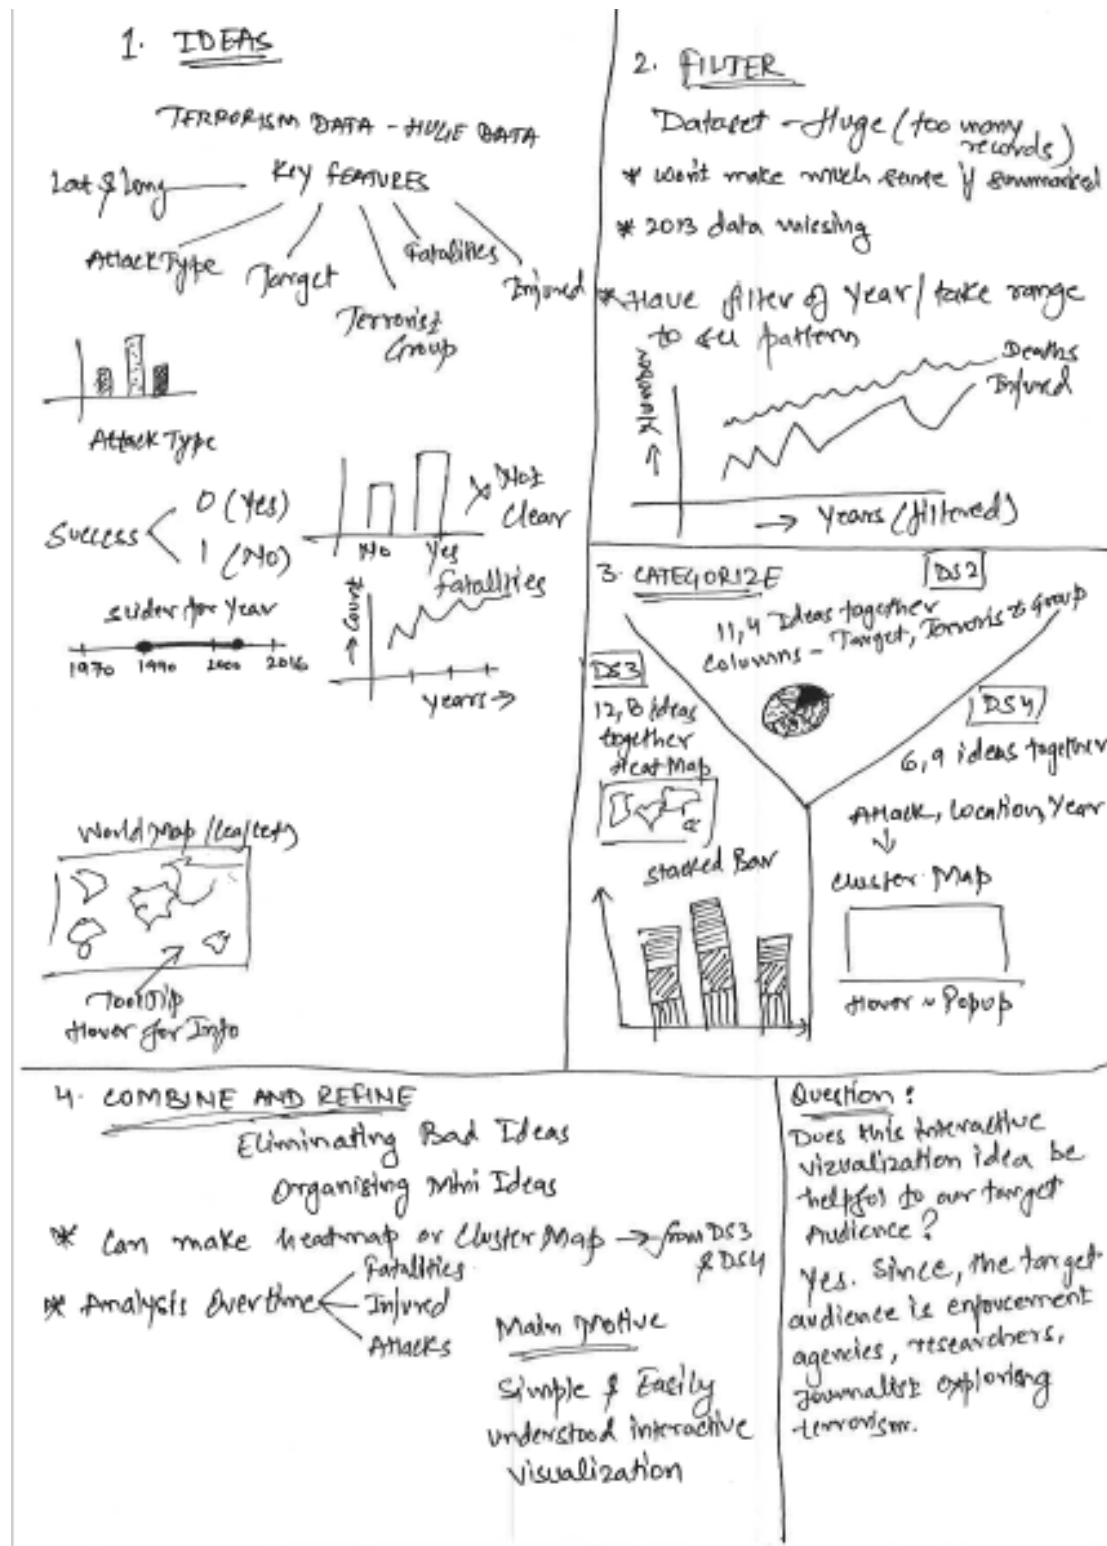 1. IDEAS
TERRORISM DATA - HUGE DATA
Key FEATURES
Lat & Long
Attack Type
Target
Terrorist
Group
Fatalities
Injured
Attack Type
Success
0 (Yes)
1 (No)
No
Yes
Not
Clear
Slider for Year
1970
1990
2000
2016
Count
Fatalities
Years
World Map / Leaflets
ToolTip
Hover for Info
2. FILTER
Dataset - Huge (too many
records)
* won't make much sense if summarised
* 2013 data missing
* Have filter of Year / take range
to see pattern
Number
Deaths
Injured
Years (filtered)
3. CATEGORIZE
DS2
11, 4 Ideas together
Columns - Target, Terrorist Group
DS3
12, 8 ideas
together
Heat Map
Stacked Bar
DS4
6, 9 ideas together
Attack, Location, Year
Cluster Map
Hover ~ Popup
4. COMBINE AND REFINE
Eliminating Bad Ideas
Organising Mini Ideas
* Can make heatmap or Cluster Map → from DS3
& DS4
* Analysis Overtime
Fatalities
Injured
Attacks
Main Motive
Simple & Easily
understood interactive
visualization
Question:
Does this interactive
vizualization idea be
helpful to our target
Audience?
Yes. Since, the target
audience is enforcement
agencies, researchers,
Journalist exploring
terrorism.